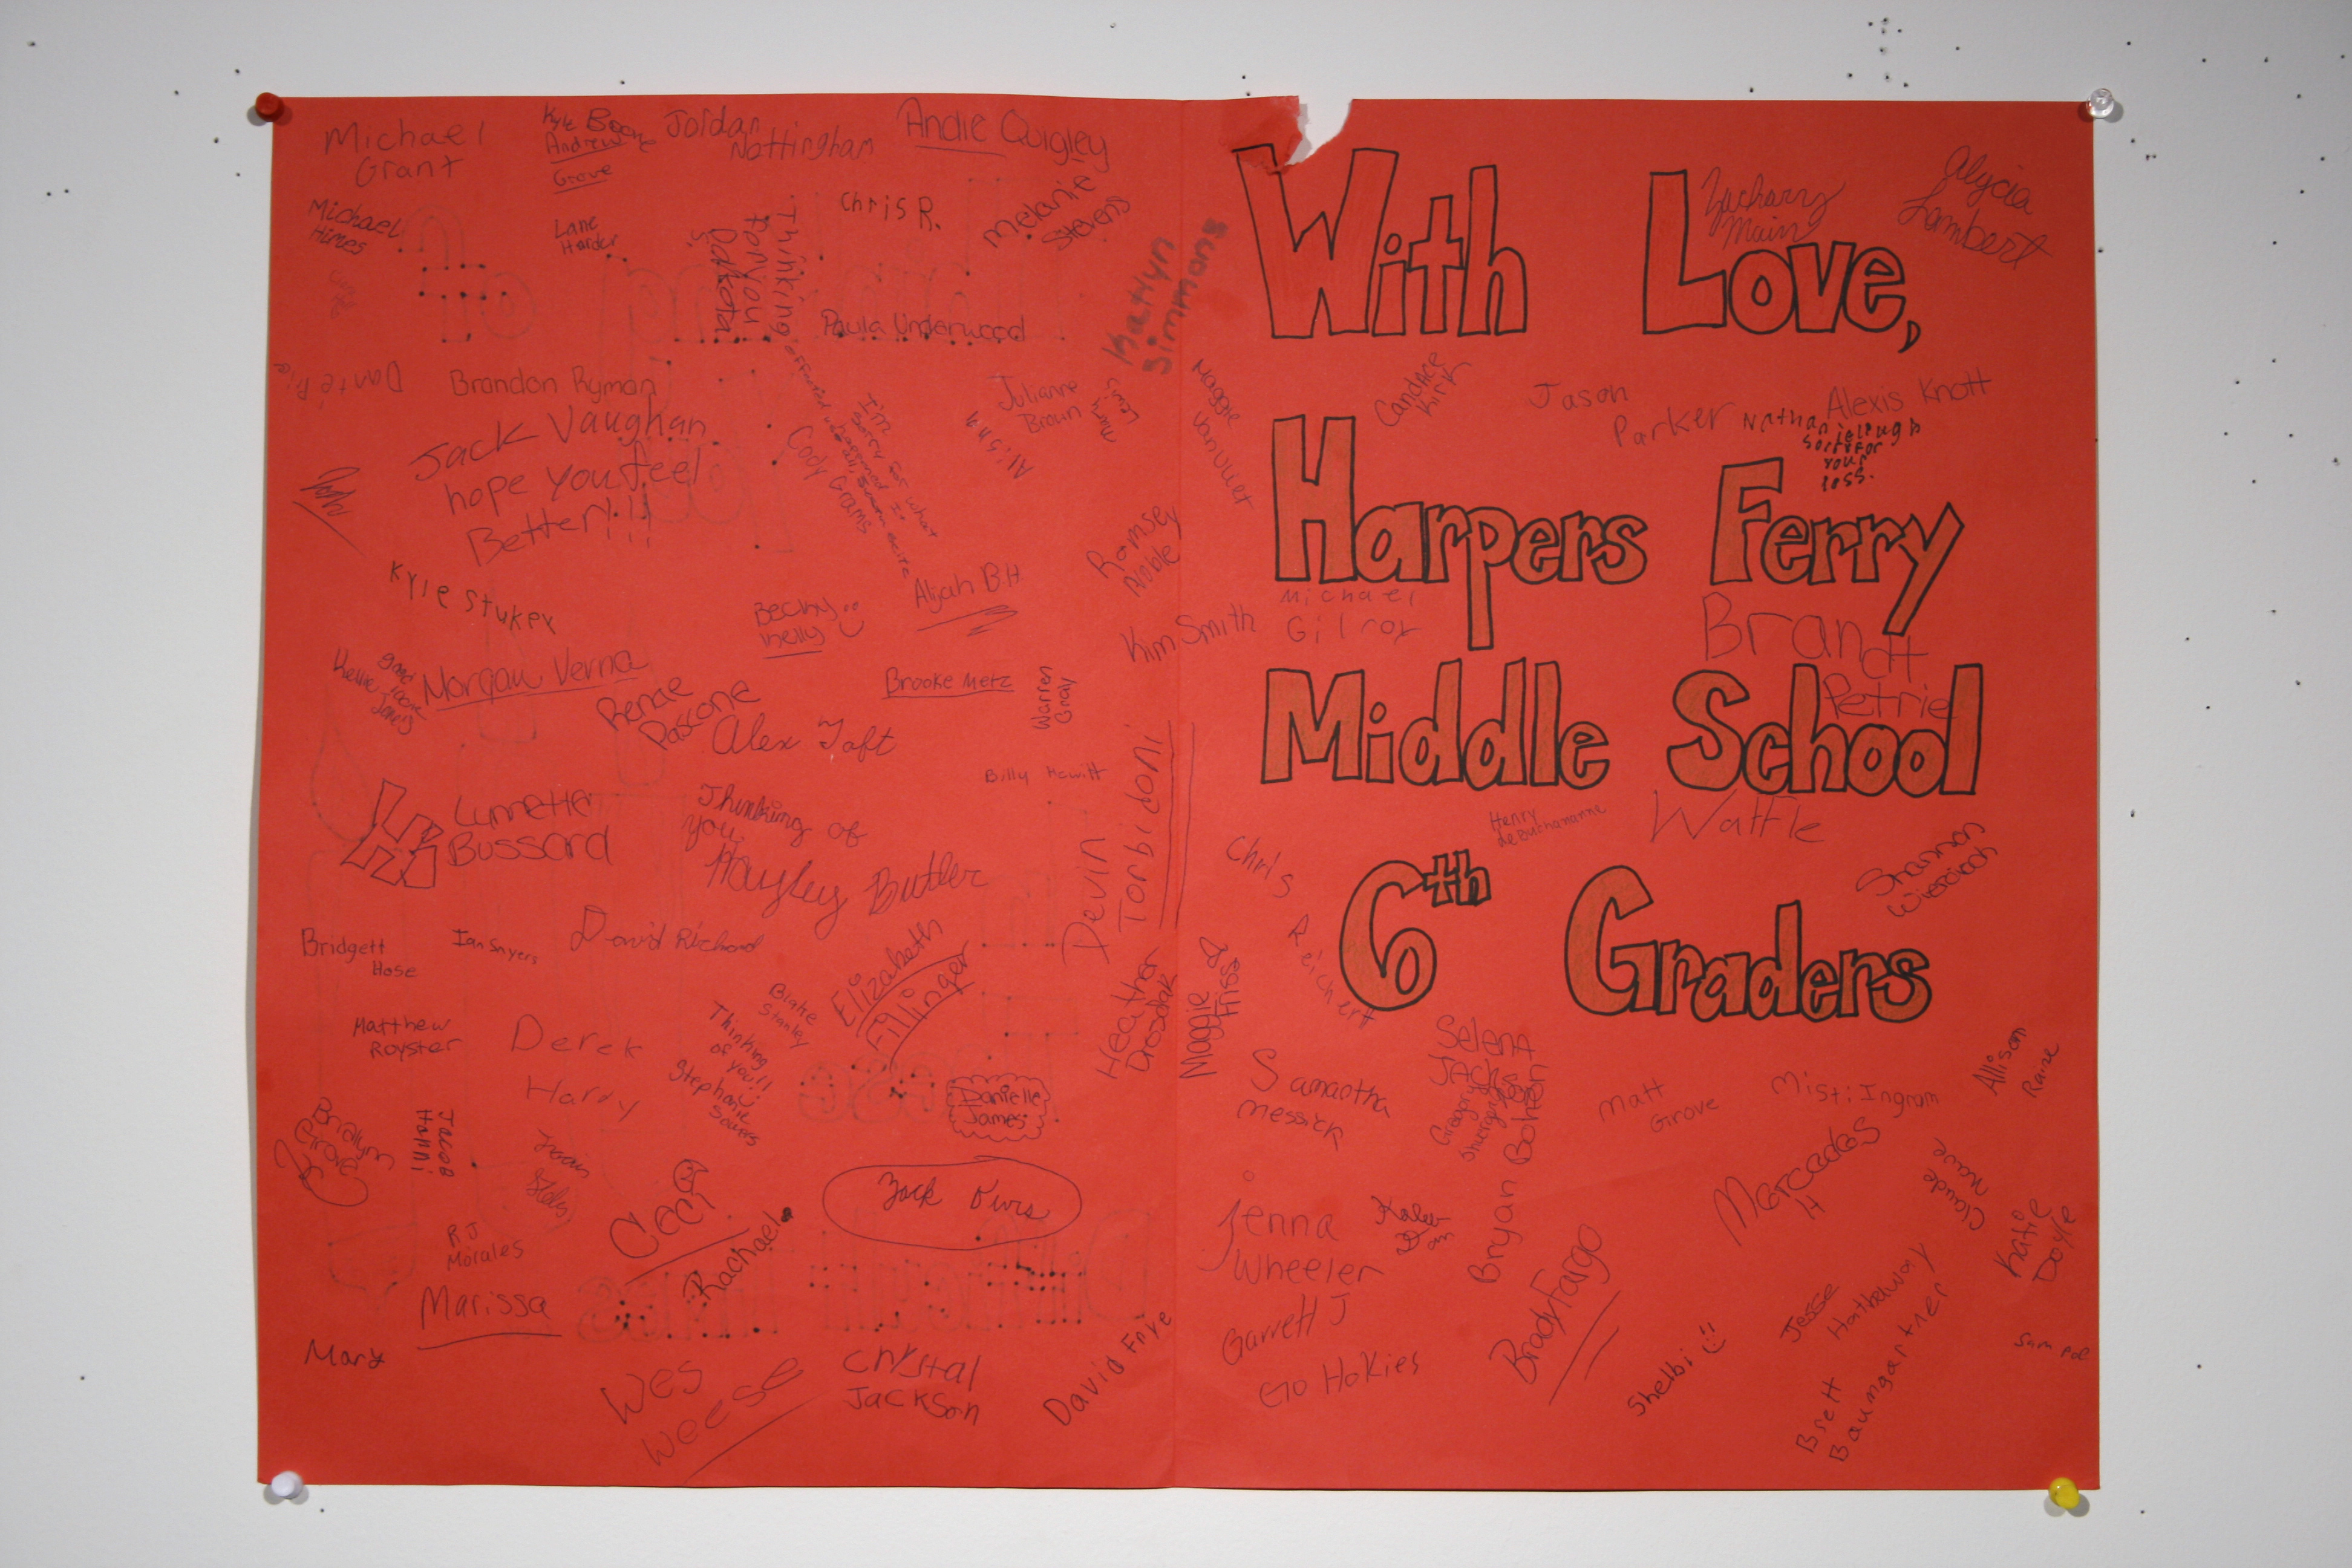 Michael
Grant
Kyle Boone
Andrew
Grove
Jordan
Nottingham
Andie Quigley
Michael
Himes
Lane
Harder
Thinking
of you
Dahkota
S.
Chris R.
Melanie
Stevens
Katlyn
Simmons
Paula Underwood
Dante
Brandon Ryman
Jack Vaughan
hope you feel
Better!!!
I'm
sorry for what
happened
Cody Grams
Julianne
Brown
Mary
Lewis
Alisha
Kyle Stukey
Becky
Kelly
Alijah B.H
Ramsey
Kim Smith
Kellie
Jones
Morgan Verna
Renae
Pascone
Alex Taft
Brooke Metz
Warren
Gray
Billy Hewitt
Lynnette
Bussard
Thinking of
you.
Hayley Butler
Devin
Torbidoni
Bridgett
Hose
Ian Snyers
David Richard
Elizabeth
Fillinger
Blake
Stanley
Heather
Drosdak
Matthew
Royster
Derek
Hardy
Thinking
of you!!
Stephanie
Sowers
Danielle
James
Brailynn
Grove
Jacob
Ceci
Rachael
Zack
RJ
Morales
Marissa
Mary
Wes
Weese
Chrystal
Jackson
David Frye
With Love,
Zachary
Main
Alycia
Lambert
Maggie
VanVliet
Candace
Kirk
Jason
Parker
Alexis Knott
Nathaniel
sorry for
your
loss.
Harpers Ferry
Michael
Gilroy
Brandt
Petrie
Middle School
Henry
deBuchananne
Wattle
Chris
Reichert
Shannon
6th Graders
Maggie
Friss
Samantha
Messick
Selena
Jackson
Gregory
Bryan Bohen
Matt
Grove
Misti Ingram
Allison
Raine
Mercades
H
Claude
Katie
Doyle
Jenna
Wheeler
Garrett J
Go Hokies
Brady Fargo
Shelbi
Jesse
Hathaway
Brett
Baumgartner